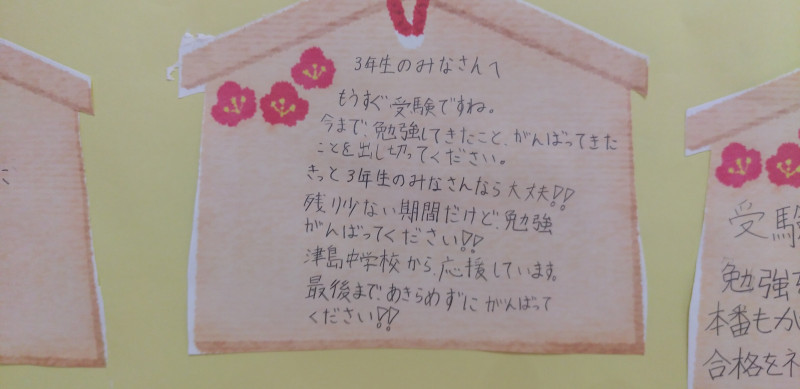 3年生のみなさんへ
もうすぐ受験ですね。
今まで、勉強してきたこと、がんばってきた
ことを出し切ってください。
きっと3年生のみなさんなら大丈夫!!
残り少ない期間だけど、勉強
がんばってください!!
津島中学校から、応援しています。
最後まで、あきらめずにがんばって
ください!!
に
受験
勉強
本番も
合格を